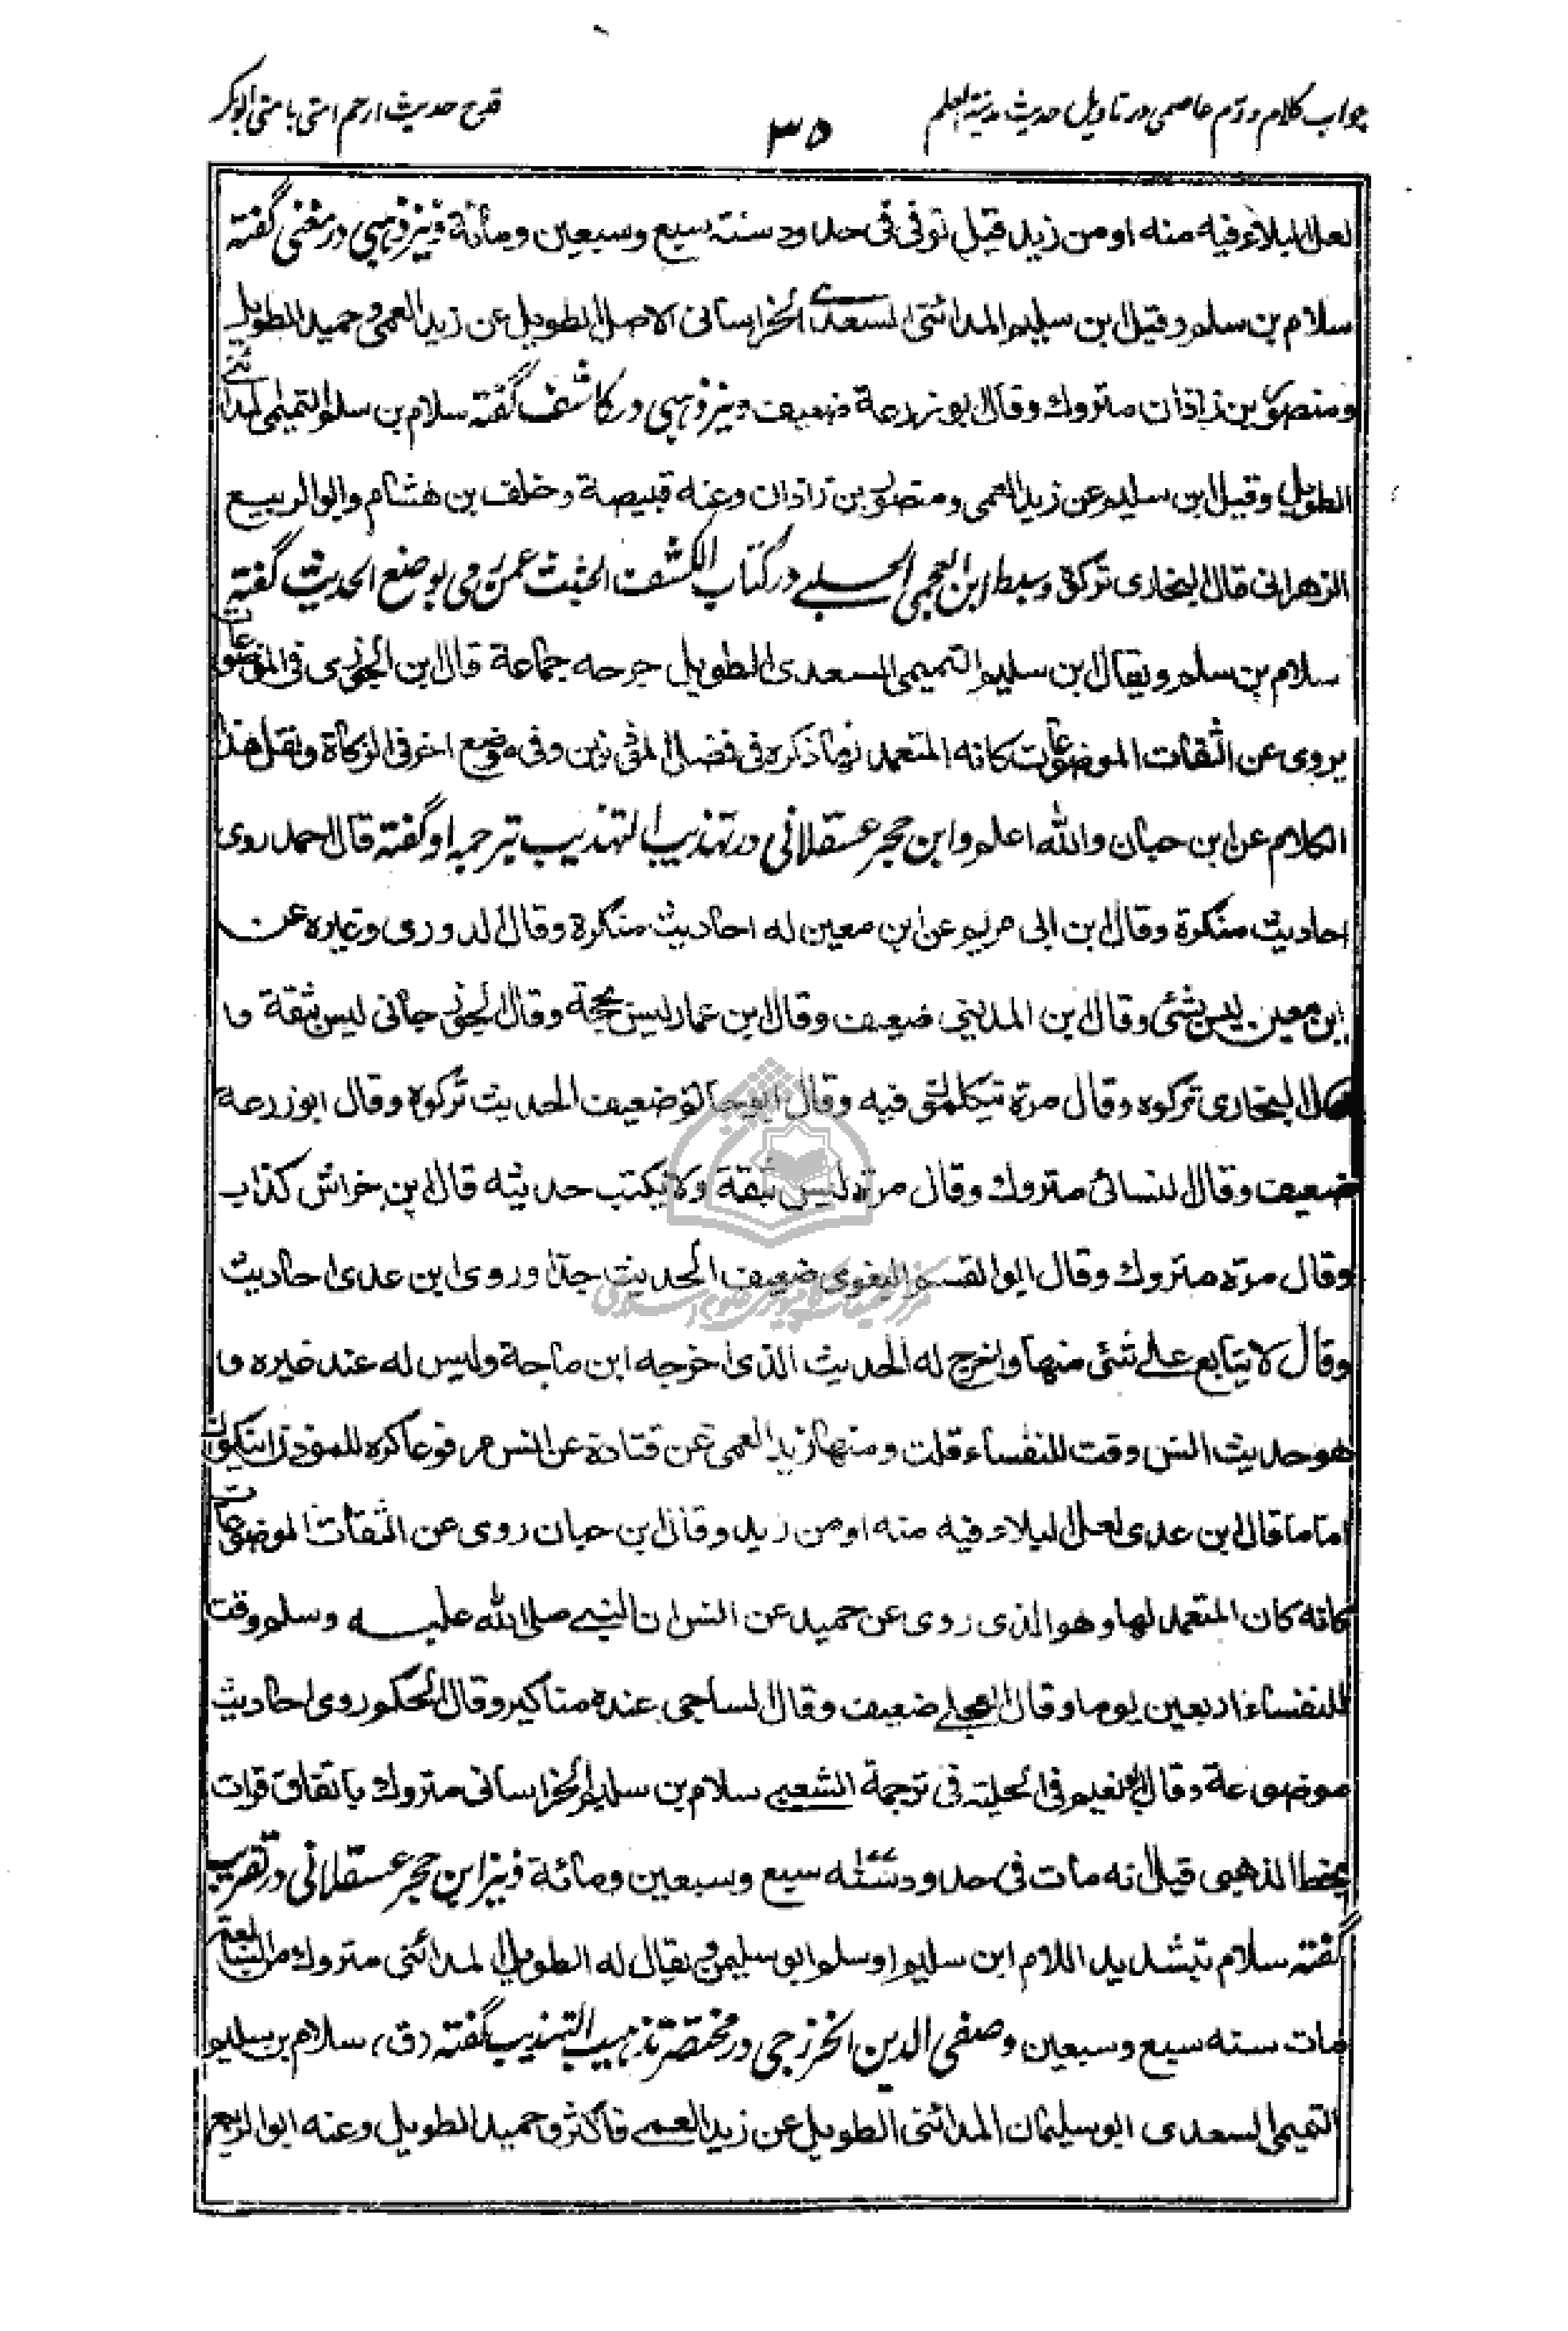 جواب کلام دوم عاصمی در تاویل حدیث مدینة العلم
۳۵
قدح حدیث ارحم امتی بامتی ابوبکر
لعل البلاء فیه منه او من زید قیل توفی فی حدود سنة سبع وسبعین ومائة ونیز ذهبی در مغنی گفته
سلام بن سلم وقیل ابن سلیم المدائنی السعدی الخراسانی الاصل الطویل عن زید العمی وحمید الطویل
ومنصور بن زاذان متروك وقال ابو زرعة ضعیف ونیز ذهبی در کاشف گفته سلام بن سلم التمیمی المدائنی
الطویل وقیل ابن سلیم عن زید العمی ومنصور بن زاذان وعنه قبیصة وخلف بن هشام وابو الربیع
الزهرانی قال البخاری ترکوه وسبط ابن العجمی الحلبی در کتاب الکشف الحثیث عمن رمی بوضع الحدیث گفته
سلام بن سلم ویقال ابن سلیم التمیمی السعدی الطویل جرحه جماعة قال ابن الجوزی فی الموضوعات
یروی عن الثقات الموضوعات کانه المتعمد لها ذکره فی فضل المؤذنین وفی موضع اخر فی الزکاة ونقل هذا
الکلام عن ابن حبان والله اعلم وابن حجر عسقلانی در تهذیب التهذیب بترجمه او گفته قال احمد روی
احادیث منکرة وقال ابن ابی مریم عن ابن معین له احادیث منکرة وقال الدوری وغیره عن
ابن معین لیس بشئ وقال ابن المدینی ضعیف وقال ابن عمار لیس بحجة وقال الجوزجانی لیس بثقة و
قال البخاری ترکوه وقال مرة یتکلمون فیه وقال ابو حاتم ضعیف الحدیث ترکوه وقال ابو زرعه
ضعیف وقال النسائی متروك وقال مرة لیس بثقة ولا یکتب حدیثه قال ابن خراش کذاب
وقال مرة متروك وقال ابو القسم البغوی ضعیف الحدیث جدا وروی ابن عدی احادیث
وقال لا یتابع علی شئ منها واخرج له الحدیث الذی اخرجه ابن ماجة ولیس له عند غیره و
هو حدیث انس وقت للنفساء قلت ومنها زید العمی عن قتادة عن انس مرفوعا کره للمؤذن ان یکون
اماما قال ابن عدی لعل البلاء فیه منه او من زید وقال ابن حبان روی عن الثقات الموضوعات
کانه کان المتعمد لها وهو الذی روی عن حمید عن انس ان النبی صلی الله علیه وسلم وقت
للنفساء اربعین یوما وقال العجلی ضعیف وقال الساجی عنده مناکیر وقال الحکم روی احادیث
موضوعة وقال ابو نعیم فی الحلیة فی ترجمة الشعبی سلام بن سلیم الخراسانی متروك باتفاق قرات
بخط الذهبی قیل انه مات فی حدود سنة ۱۷۷ سبع وسبعین ومائة ونیز ابن حجر عسقلانی در تقریب
گفته سلام بتشدید اللام ابن سلیم او سلم ابو سلیمن ویقال له الطویل المدائنی متروك من السابعة
مات سنه سبع وسبعین وصفی الدین الخزرجی در مختصر تذهیب التهذیب گفته (ق) سلام بن سلیم
التمیمی السعدی ابو سلیمان المدائنی الطویل عن زید العمی فاکثر وحمید الطویل وعنه ابو الربیع